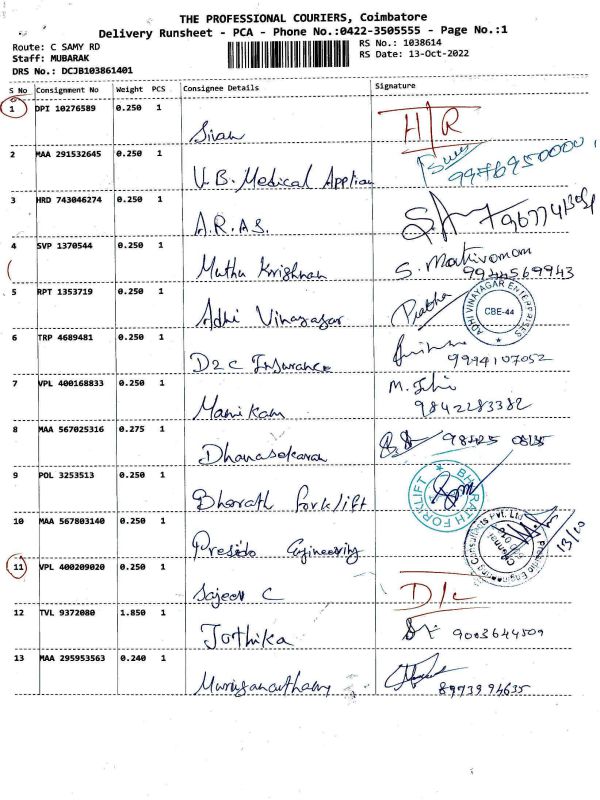 THE PROFESSIONAL COURIERS, Coimbatore
Delivery Runsheet - PCA - Phone No.:0422-3505555 - Page No.:1
Route: C SAMY RD RS No.: 1038614
Staff: MUBARAK RS Date: 13-Oct-2022
DRS No.: DCJB103861401
S No Consignment No Weight PCS Consignee Details Signature
1 DPI 10276589 0.250 1 Sivan H/R
2 MAA 291532645 0.250 1 V.B. Medical 9976950000
3 HRD 743046274 0.250 1 A.R.A.S.
4 SVP 1370544 0.250 1 Muthu Krishnan S. Mathivanan 9944569943
5 RPT 1353719 0.250 1 Adhi Vinayagar Prabha ADHI VINAYAGAR ENTERPRISES CBE-44
6 TRP 4689481 0.250 1 D2C Insurance 9994107052
7 VPL 400168833 0.250 1 Manikam 9842283382
8 MAA 567025316 0.275 1 Dhanasekaran
9 POL 3253513 0.250 1 Bharath Forklift BHARATH FORKLIFT
10 MAA 567803140 0.250 1 Presido Engineering 13/10
11 VPL 400209020 0.250 1 Sajeev C D/c
12 TVL 9372080 1.850 1 Jothika 9003644509
13 MAA 295953563 0.240 1 8973994635